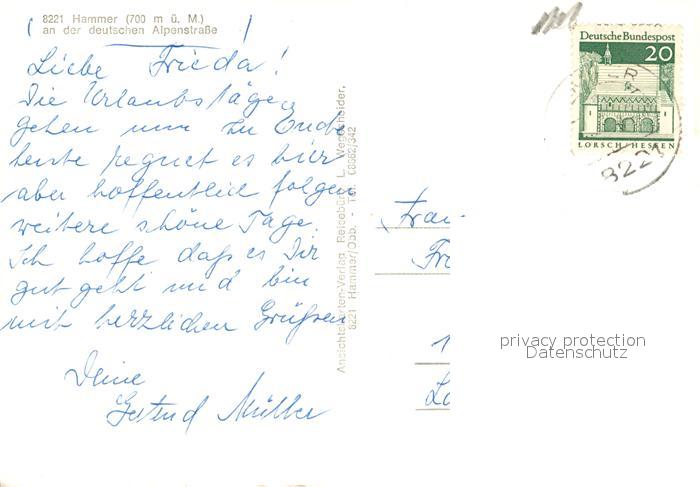 8221 Hammer (700 m ü. M.)
an der deutschen Alpenstraße
Liebe Frieda!
Die Urlaubstage
gehen nun zu Ende
heute regnet es hier
aber hoffentlich folgen
weitere schöne Tage.
Ich hoffe daß es Dir
gut geht und bin
mit herzlichen Grüßen
Deine
Gertrud Müller
Ansichtskarten-Verlag Reisebüro L. Wegscheider,
8221 Hammer/Obb. - Tel. 08662/342
Deutsche Bundespost
20
LORSCH/HESSEN
8221
Frau
Fr
1
privacy protection
Datenschutz